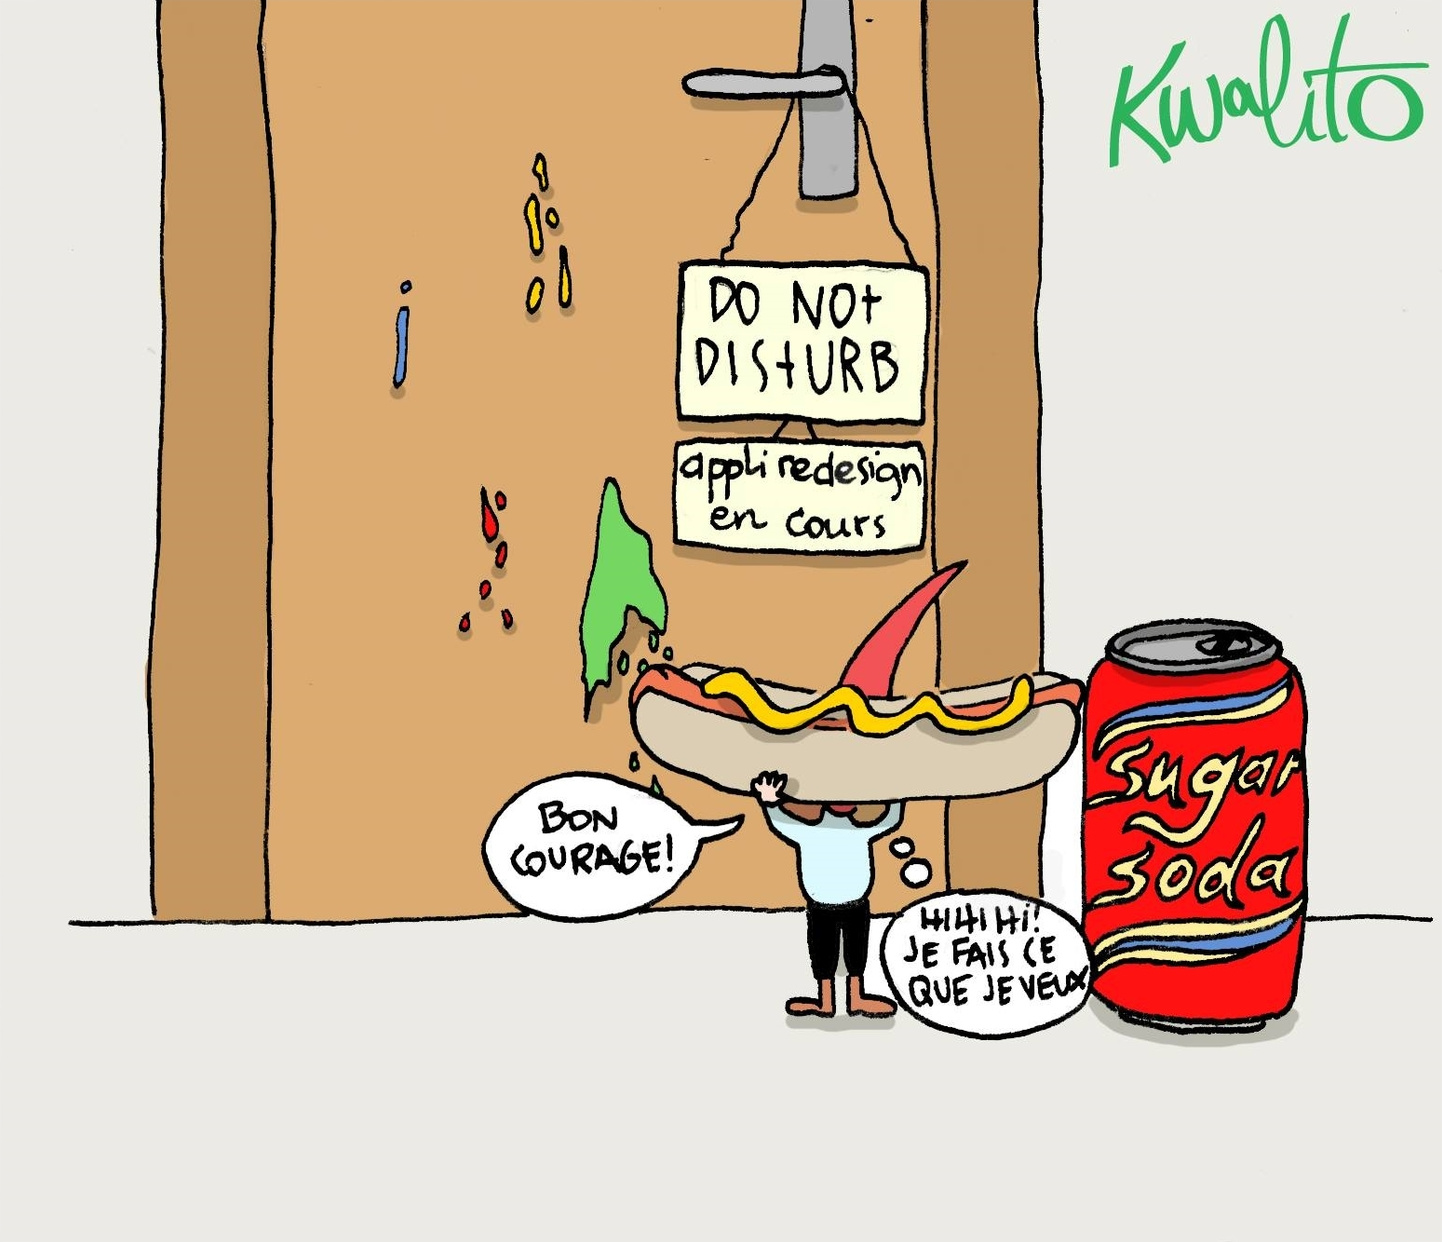 Kwalito
DO NOT
DISTURB
appli redesign
en cours
BON
COURAGE!
HIHIHI!
JE FAIS CE
QUE JE VEUX
Sugar
soda